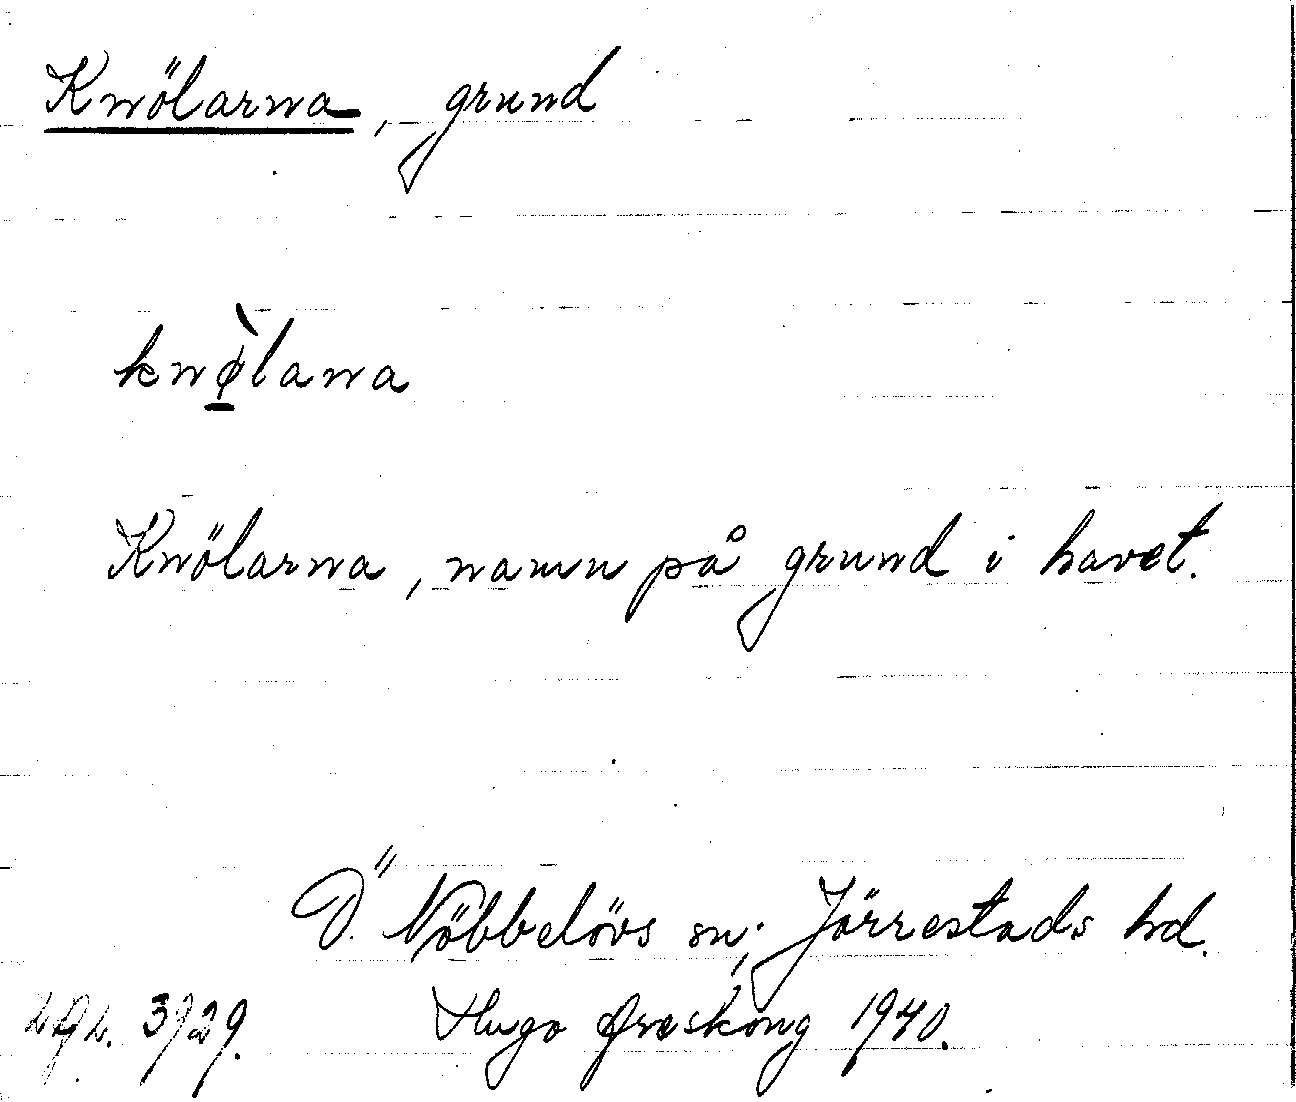 Knölarna, grund
knø̀lana
Knölarna, namn på grund i havet.
Ö. Nöbbelövs sn; Järrestads hd.
3729. Hugo Areskoug 1940.